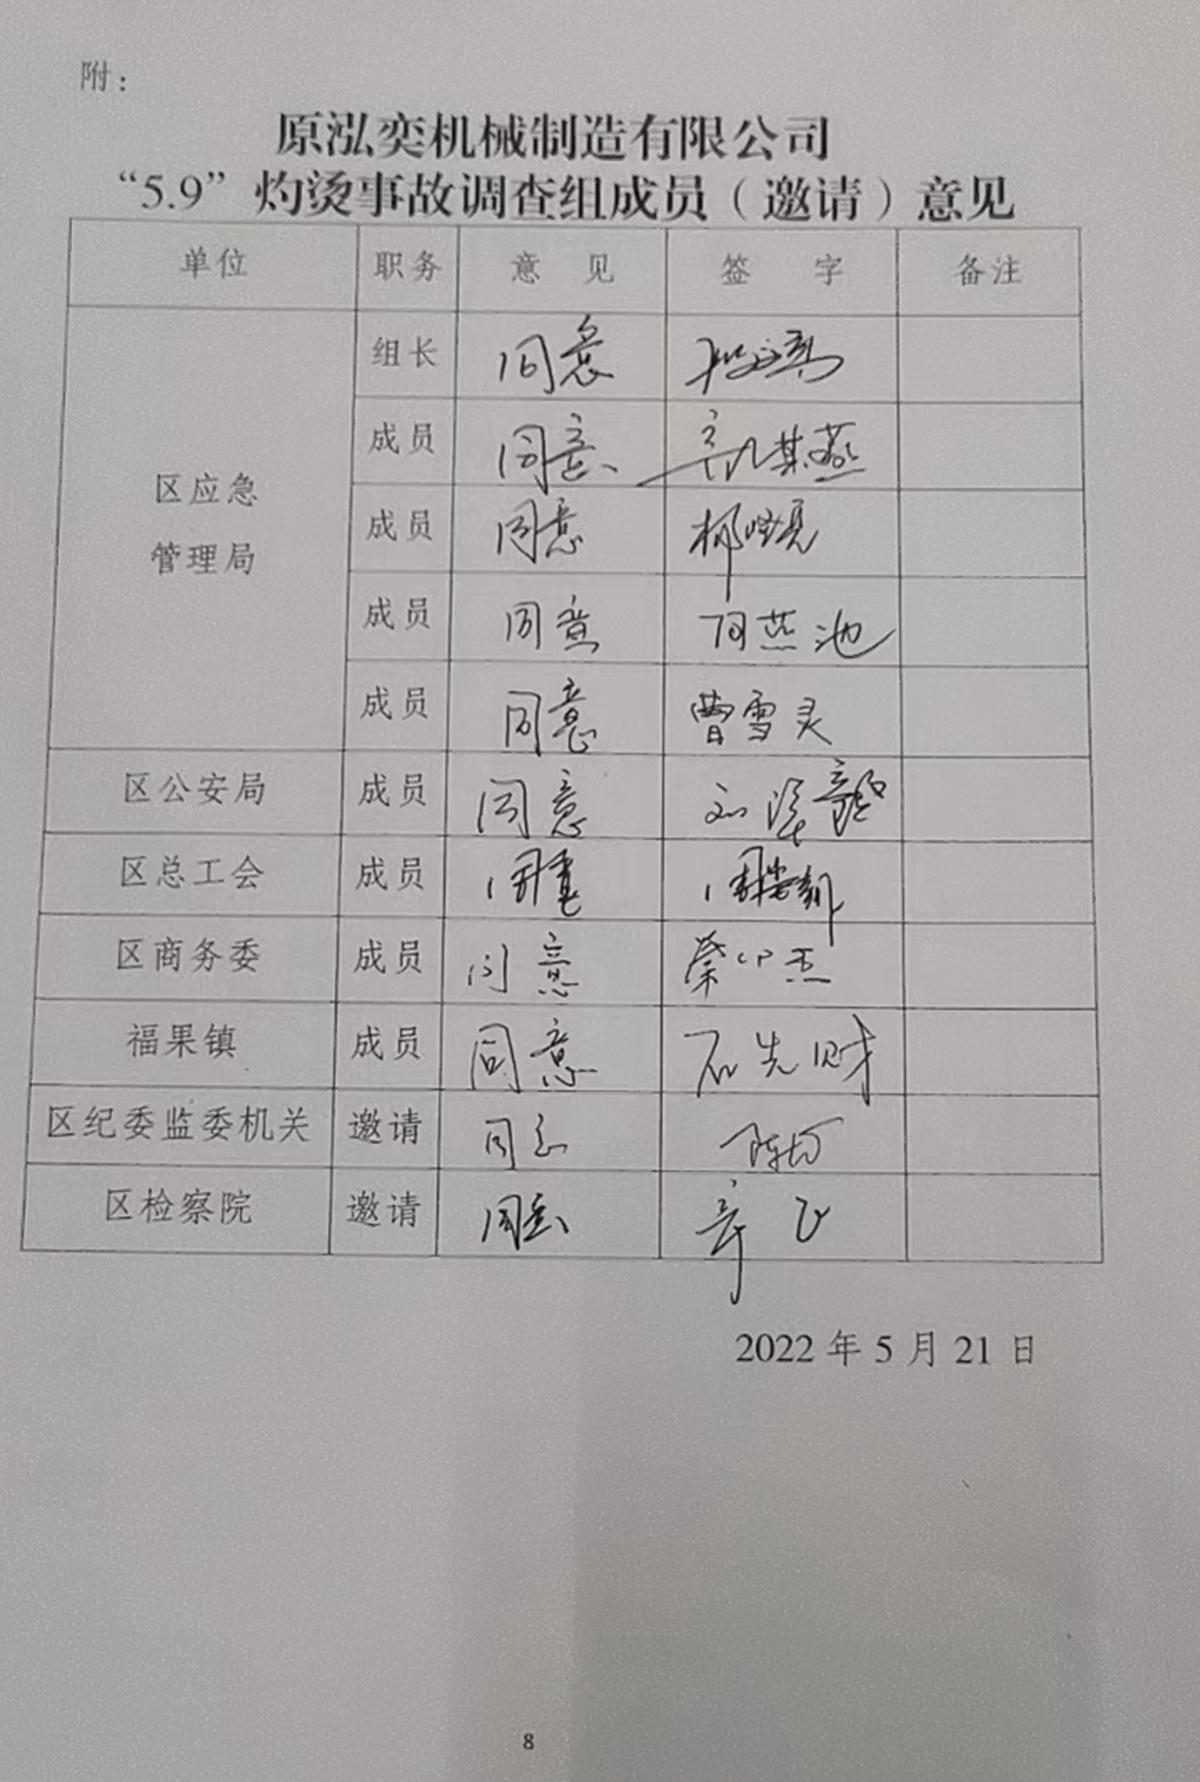 附：
原泓奕机械制造有限公司
“5.9”灼烫事故调查组成员（邀请）意见
单位 职务 意 见 签 字 备注
区应急
管理局
组长 同意
成员 同意
成员 同意
成员 同意 闫燕池
成员 同意 曹雪灵
区公安局 成员 同意 刘泽
区总工会 成员 同意
区商务委 成员 同意
福果镇 成员 同意 石先财
区纪委监委机关 邀请 同意
区检察院 邀请 同意 章飞
2022年5月21日
8